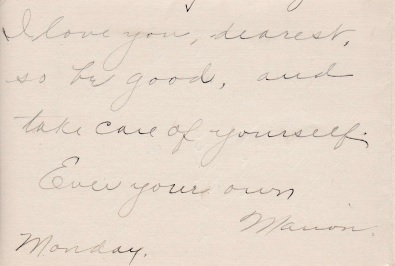 I love you, dearest,
so be good, and
take care of yourself.
Ever yours own
Marion.
Monday.